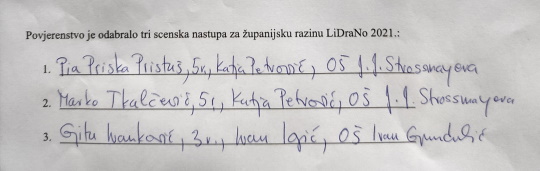 Povjerenstvo je odabralo tri scenska nastupa za županijsku razinu LiDraNo 2021.:
1. Pia Priska Pristuš, 5r., Katja Petrović, OŠ J.J. Strossmayera
2. Marko Tkalčević, 5r., Katja Petrović, OŠ J.J. Strossmayera
3. Gita Ivanković, 3r., Ivan Igić, OŠ Ivan Gundulić